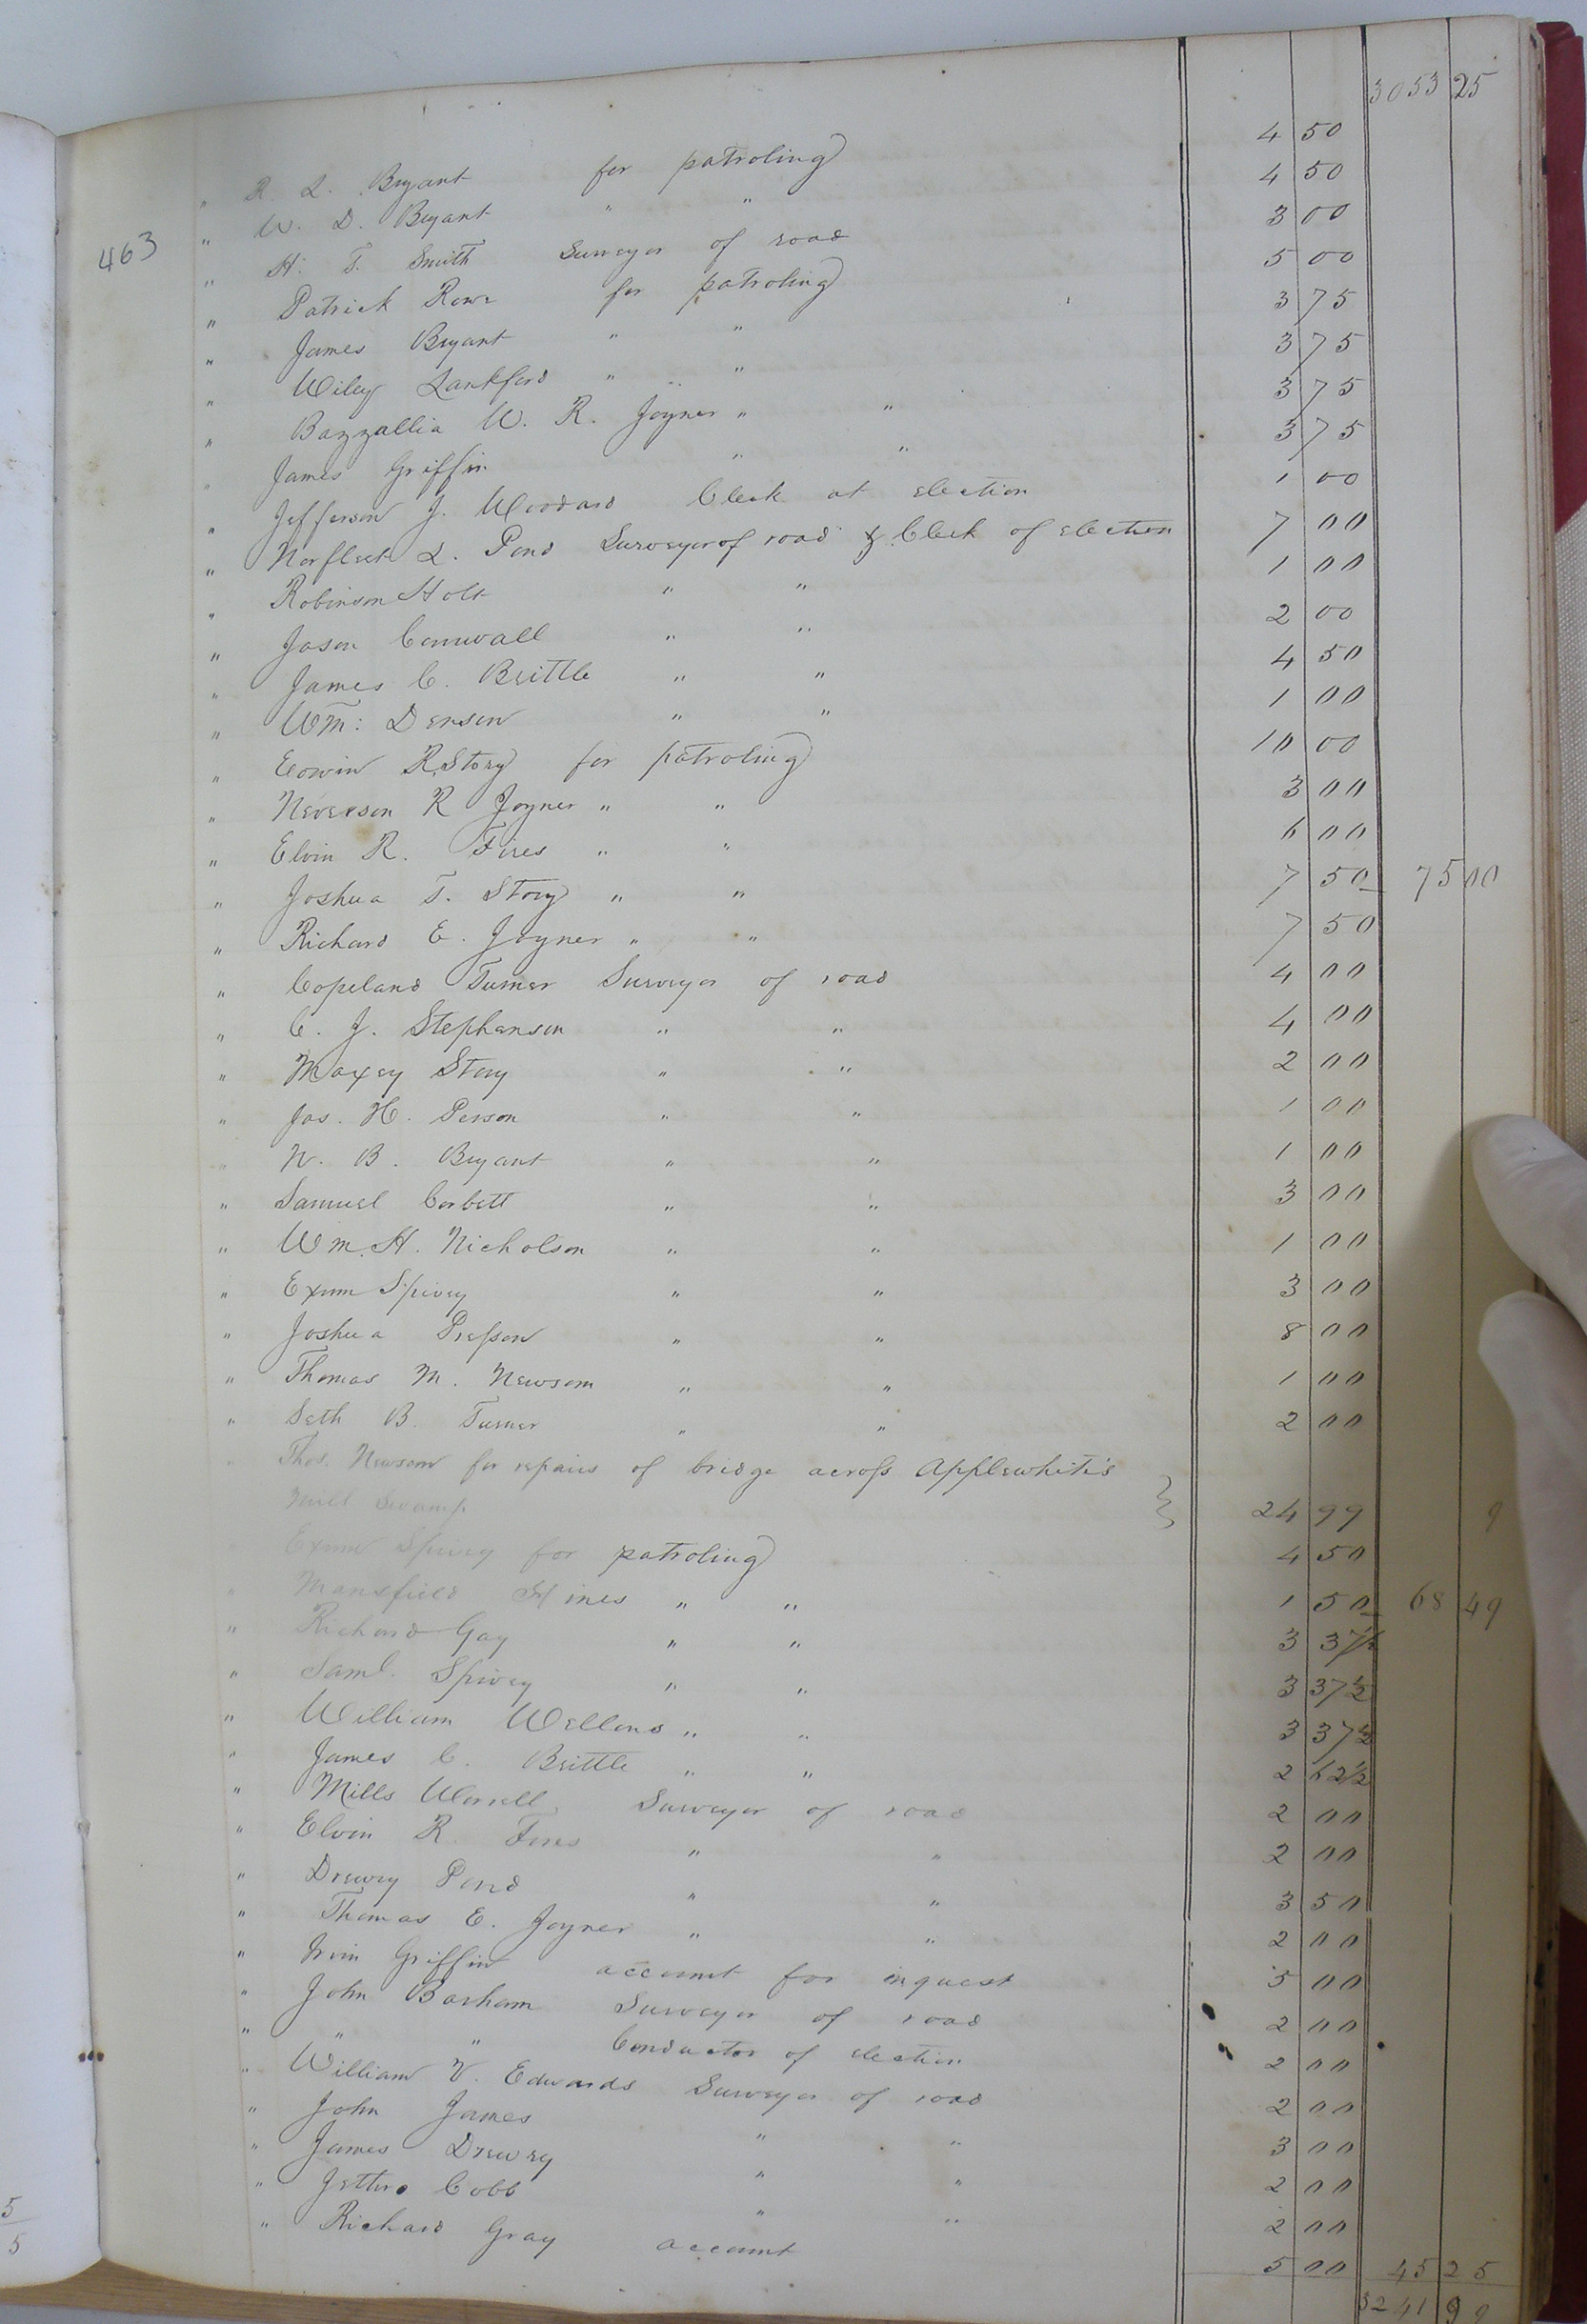 3053 25
" R. L. Bryant for patroling 4 50
" W. D. Bryant " " 4 50
463 " H. T. Smith Surveyor of road 3 00
" Patrick Rowe for patroling 5 00
" James Bryant " " 3 75
" Wiley Lankford " " 3 75
" Bazzallia W. R. Joyner " " 3 75
" James Griffin " " 3 75
" Jefferson J. Woodard Clerk at election 1 00
" Norfleet L. Pond Surveyor of road & Clerk of election 7 00
" Robinson Holt " " 1 00
" Jason Cornwall " " 2 00
" James C. Brittle " " 4 50
" Wm: Denson " " 1 00
" Edwin R. Story for patroling 10 00
" Neverson R Joyner " " 3 00
" Elvin R. Fires " " 6 00
" Joshua T. Story " " 7 50 75 00
" Richard E. Joyner " " 7 50
" Copeland Turner Surveyor of road 4 00
" C. J. Stephenson " " 4 00
" Maxey Story " " 2 00
" Jas. H. Person " " 1 00
" N. B. Bryant " " 1 00
" Samuel Corbett " " 3 00
" Wm. H. Nicholson " " 1 00
" Exum Spivey " " 3 00
" Joshua Presson " " 8 00
" Thomas M. Newsom " " 1 00
" Seth B. Turner " " 2 00
" Thos. Newsom for repairs of bridge across Applewhite's
Mill Swamp 24 99 9
" Exum Spivey for patroling 4 50
" Mansfield Hines " " 1 50 68 49
" Richard Gay " " 3 37½
" Saml. Spivey " " 3 37½
" William Wellons " " 3 37½
" James C. Brittle " " 2 62½
" Mills Worrell Surveyor of road 2 00
" Elvin R. Fires " " 2 00
" Drewry Pond " " 3 50
" Thomas E. Joyner " " 2 00
" Irvin Griffin account for inquest 5 00
" John Barham Surveyor of road 2 00
" " " Conductor of election 2 00
" William V. Edwards Surveyor of road 2 00
" John James " " 3 00
" James Drewry " " 2 00
" Jethro Cobb " " 2 00
" Richard Gray account 5 00 45 25
3241 99
5
5